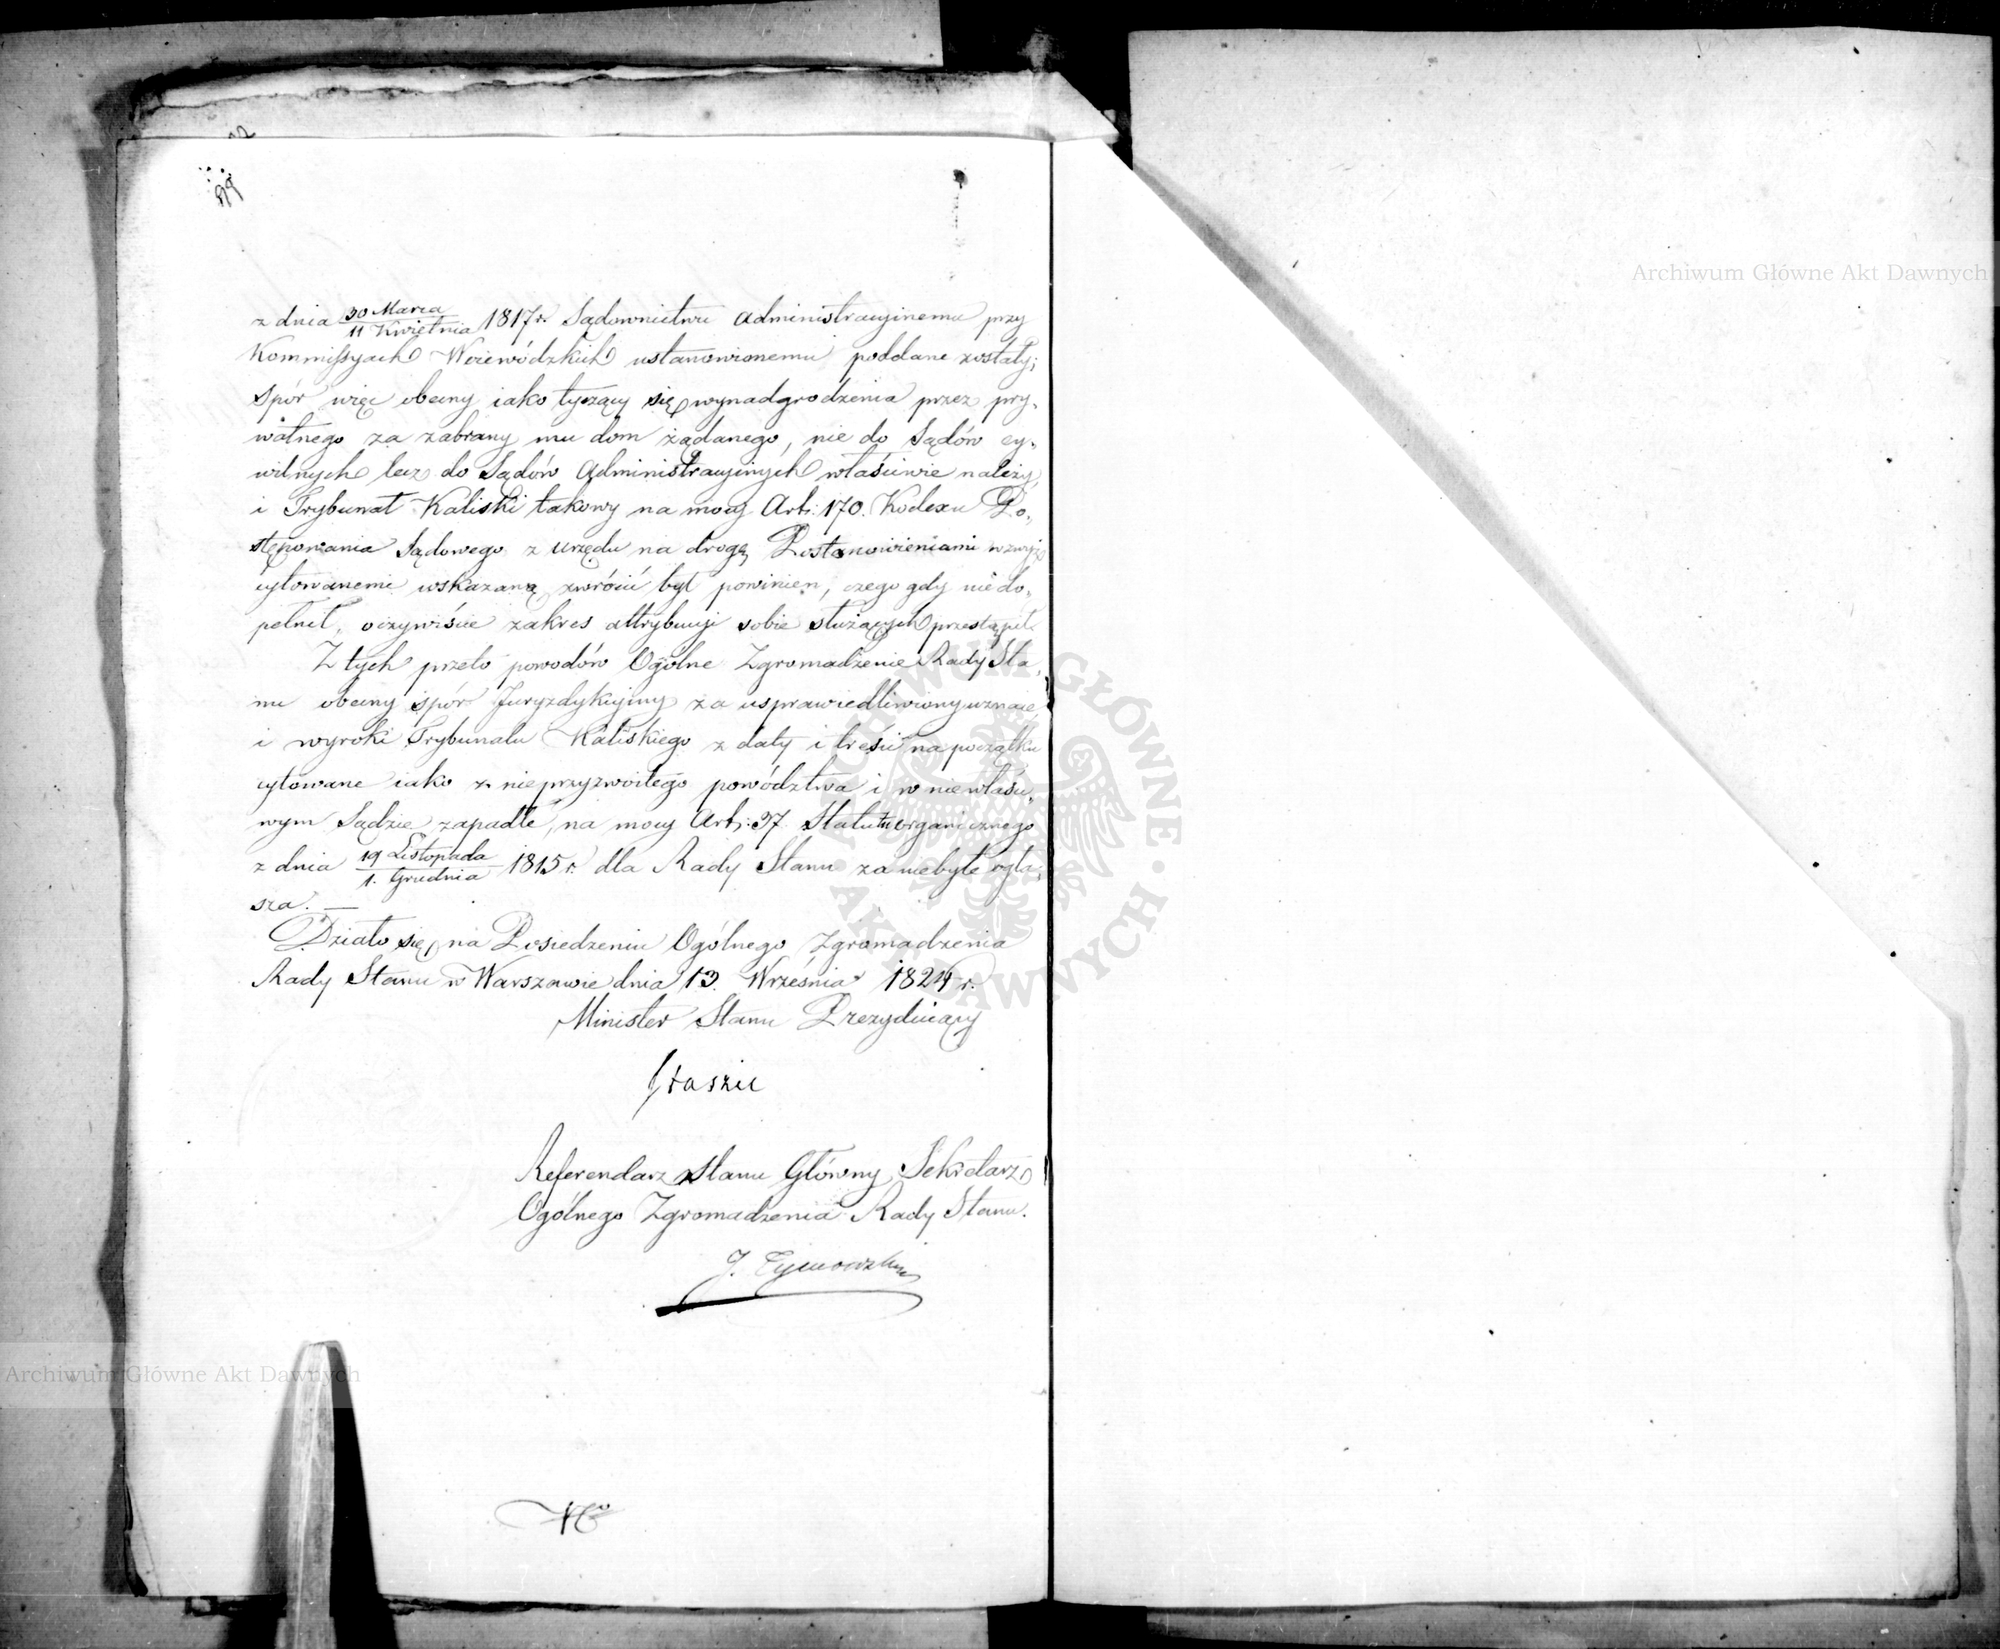 z dnia 30 Marca / 11 Kwietnia 1817 r. Sądownictwu administracyinemu przy
Kommissyach Woiewódzkich ustanowionemu poddane zostały;
spór więc obecny iako tyczący się wynadgrodzenia przez pry-
watnego za zabrany mu dom żądanego, nie do Sądów cy-
wilnych lecz do Sądów Administracyinych właściwie należy,
i Trybunał Kaliski takowy na mocy Art: 170. Kodexu Po-
stępowania Sądowego z urzędu na drogę Postanowieniami wzwyż
cytowanemi wskazaną zwrócić był powinien, czego gdy niedo-
pełnił, oczywiście zakres attrybucyi sobie służących przestąpił.
Z tych przeto powodów Ogólne Zgromadzenie Rady Sta-
nu obecny spór Juryzdykcyiny za usprawiedliwiony uznaie,
i wyroki Trybunału Kaliskiego z daty i treści na początku
cytowane iako z nieprzyzwoitego powództwa i w niewłaści-
wym Sądzie zapadłe, na mocy Art: 37. Statutu organicznego
z dnia 19 Listopada / 1. Grudnia 1815 r. dla Rady Stanu za niebyłe ogła-
sza. —
Działo się na Posiedzeniu Ogólnego Zgromadzenia
Rady Stanu w Warszawie dnia 13. Września 1824 r.
Minister Stanu Prezyduiący
Staszic
Referendarz Stanu Główny Sekretarz
Ogólnego Zgromadzenia Rady Stanu.
J. Tymowski
Archiwum Główne Akt Dawnych
Archiwum Główne Akt Dawnych
ARCHIWUM GŁÓWNE AKT DAWNYCH